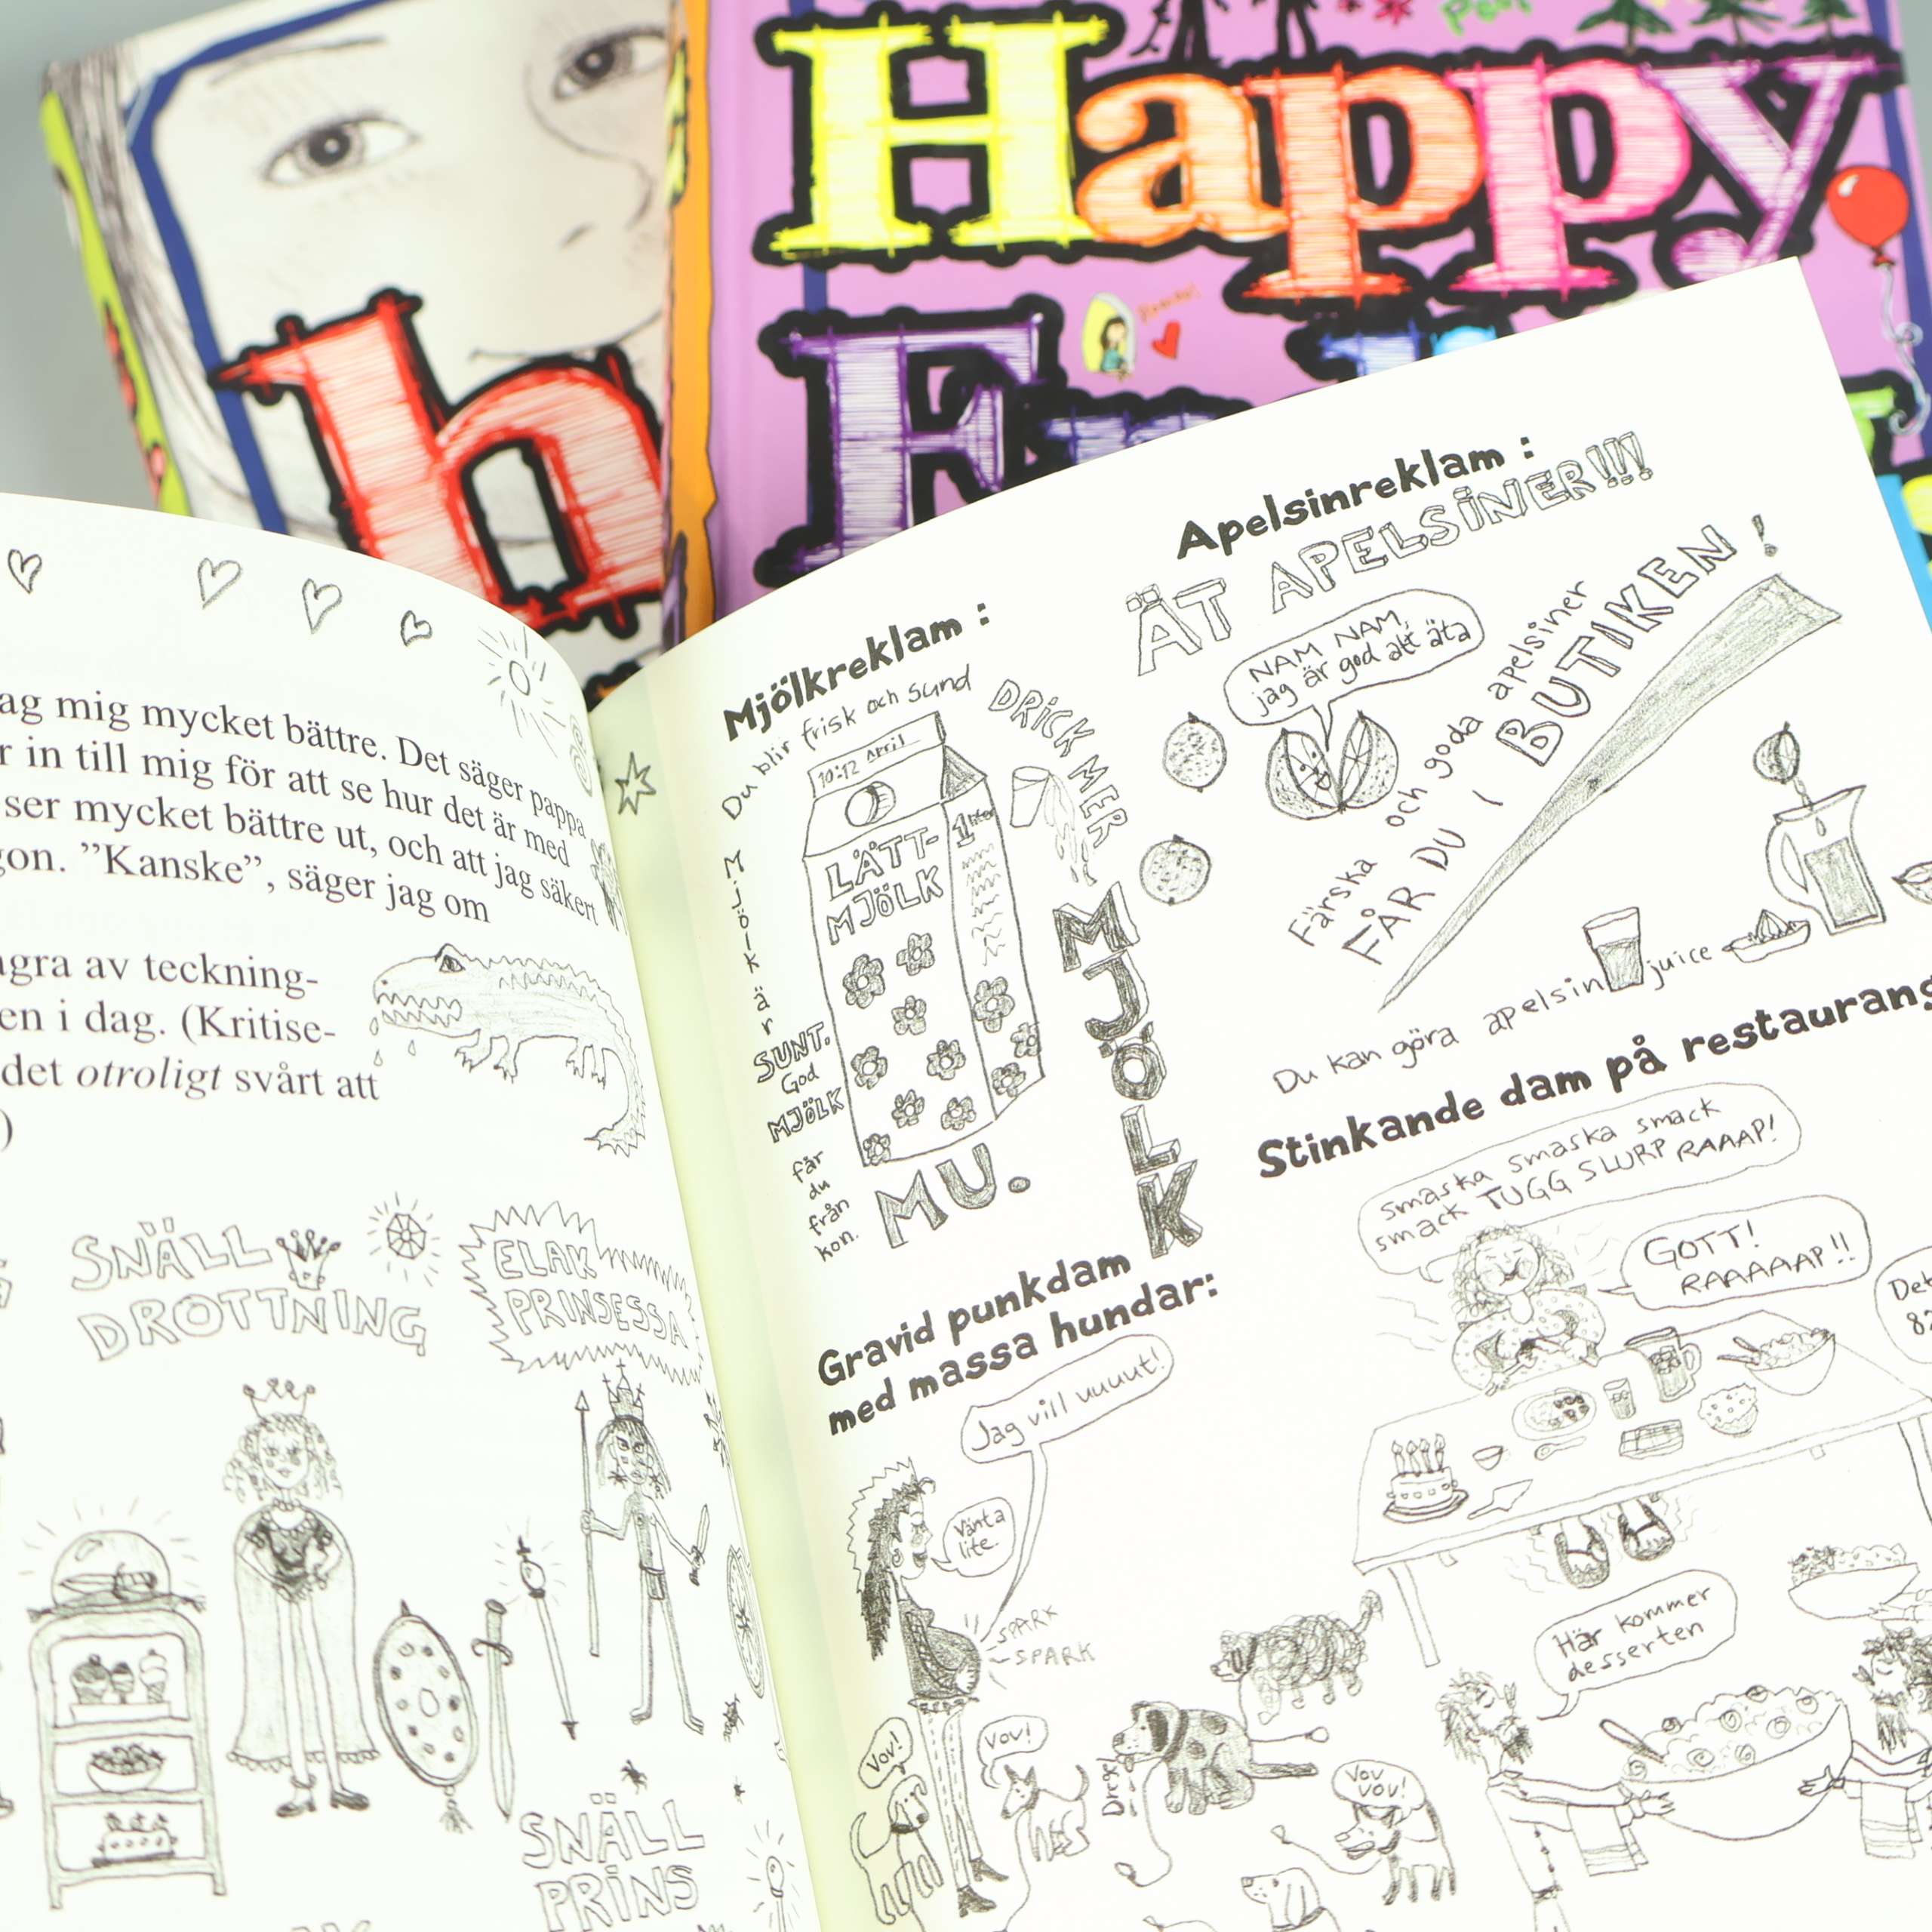 Happy
h
♥ ag mig mycket bättre. Det säger pappa
r in till mig för att se hur det är med
ser mycket bättre ut, och att jag säkert
gon. ”Kanske”, säger jag om
gra av teckning-
en i dag. (Kritise-
det otroligt svårt att
)
SNÄLL
DROTTNING
ELAK
PRINSESSA
SNÄLL
PRINS
Mjölkreklam :
Du blir frisk och sund
DRICK MER
MJÖLK
10-12 April
LÄTT-
MJÖLK
1 liter
Mjölk är
SUNT.
God
MJÖLK
får
du
från
kon.
MU.
Apelsinreklam :
ÄT APELSINER!!!
NAM NAM,
jag är god att äta
Färska och goda apelsiner
FÅR DU I BUTIKEN!
Du kan göra apelsin juice
Gravid punkdam
med massa hundar:
Jag vill uuuut!
Vänta
lite.
SPARK
SPARK
Vov!
Vov!
Dregel
Vov
vov!
Stinkande dam på restaurang
Smaska smaska smack
smack TUGG SLURP RAAAP!
GOTT!
RAAAAAP!!
Här kommer
desserten